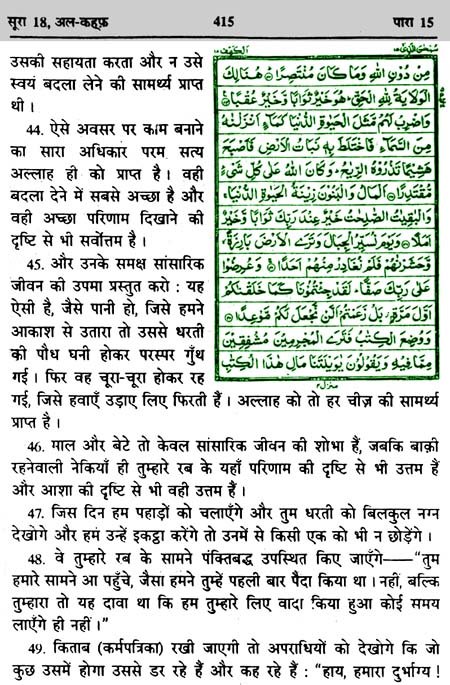 सूरा 18, अल-कहफ़ 415 पारा 15
उसकी सहायता करता और न उसे
स्वयं बदला लेने की सामर्थ्य प्राप्त
थी ।
44. ऐसे अवसर पर काम बनाने
का सारा अधिकार परम सत्य
अल्लाह ही को प्राप्त है । वही
बदला देने में सबसे अच्छा है और
वही अच्छा परिणाम दिखाने की
दृष्टि से भी सर्वोत्तम है ।
45. और उनके समक्ष सांसारिक
जीवन की उपमा प्रस्तुत करो : यह
ऐसी है, जैसे पानी हो, जिसे हमने
आकाश से उतारा तो उससे धरती
की पौध घनी होकर परस्पर गुँथ
गई । फिर वह चूरा-चूरा होकर रह
مِنْ دُوْنِ اللهِ وَمَا كَانَ مُنْتَصِرًا هُنَالِكَ
الْوَلَايَةُ لِلهِ الْحَقِّ هُوَ خَيْرٌ ثَوَابًا وَّخَيْرٌ عُقْبًا
وَاضْرِبْ لَهُمْ مَّثَلَ الْحَيٰوةِ الدُّنْيَا كَمَآءٍ اَنْزَلْنٰهُ
مِنَ السَّمَآءِ فَاخْتَلَطَ بِهٖ نَبَاتُ الْاَرْضِ فَاَصْبَحَ
هَشِيْمًا تَذْرُوْهُ الرِّيٰحُ وَكَانَ اللهُ عَلٰى كُلِّ شَيْءٍ
مُّقْتَدِرًا اَلْمَالُ وَالْبَنُوْنَ زِيْنَةُ الْحَيٰوةِ الدُّنْيَا
وَالْبٰقِيٰتُ الصّٰلِحٰتُ خَيْرٌ عِنْدَ رَبِّكَ ثَوَابًا وَّخَيْرٌ
اَمَلًا وَيَوْمَ نُسَيِّرُ الْجِبَالَ وَتَرَى الْاَرْضَ بَارِزَةً
وَّحَشَرْنٰهُمْ فَلَمْ نُغَادِرْ مِنْهُمْ اَحَدًا وَعُرِضُوْا
عَلٰى رَبِّكَ صَفًّا لَقَدْ جِئْتُمُوْنَا كَمَا خَلَقْنٰكُمْ
اَوَّلَ مَرَّةٍ بَلْ زَعَمْتُمْ اَلَّنْ نَّجْعَلَ لَكُمْ مَّوْعِدًا
وَوُضِعَ الْكِتٰبُ فَتَرَى الْمُجْرِمِيْنَ مُشْفِقِيْنَ
مِمَّا فِيْهِ وَيَقُوْلُوْنَ يٰوَيْلَتَنَا مَالِ هٰذَا الْكِتٰبِ
गई, जिसे हवाएँ उड़ाए लिए फिरती हैं । अल्लाह को तो हर चीज़ की सामर्थ्य
प्राप्त है ।
46. माल और बेटे तो केवल सांसारिक जीवन की शोभा हैं, जबकि बाक़ी
रहनेवाली नेकियाँ ही तुम्हारे रब के यहाँ परिणाम की दृष्टि से भी उत्तम हैं
और आशा की दृष्टि से भी वही उत्तम हैं ।
47. जिस दिन हम पहाड़ों को चलाएँगे और तुम धरती को बिलकुल नग्न
देखोगे और हम उन्हें इकट्ठा करेंगे तो उनमें से किसी एक को भी न छोड़ेंगे ।
48. वे तुम्हारे रब के सामने पंक्तिबद्ध उपस्थित किए जाएँगे——“तुम
हमारे सामने आ पहुँचे, जैसा हमने तुम्हें पहली बार पैदा किया था । नहीं, बल्कि
तुम्हारा तो यह दावा था कि हम तुम्हारे लिए वादा किया हुआ कोई समय
लाएँगे ही नहीं ।”
49. किताब (कर्मपत्रिका) रखी जाएगी तो अपराधियों को देखोगे कि जो
कुछ उसमें होगा उससे डर रहे हैं और कह रहे हैं : “हाय, हमारा दुर्भाग्य !